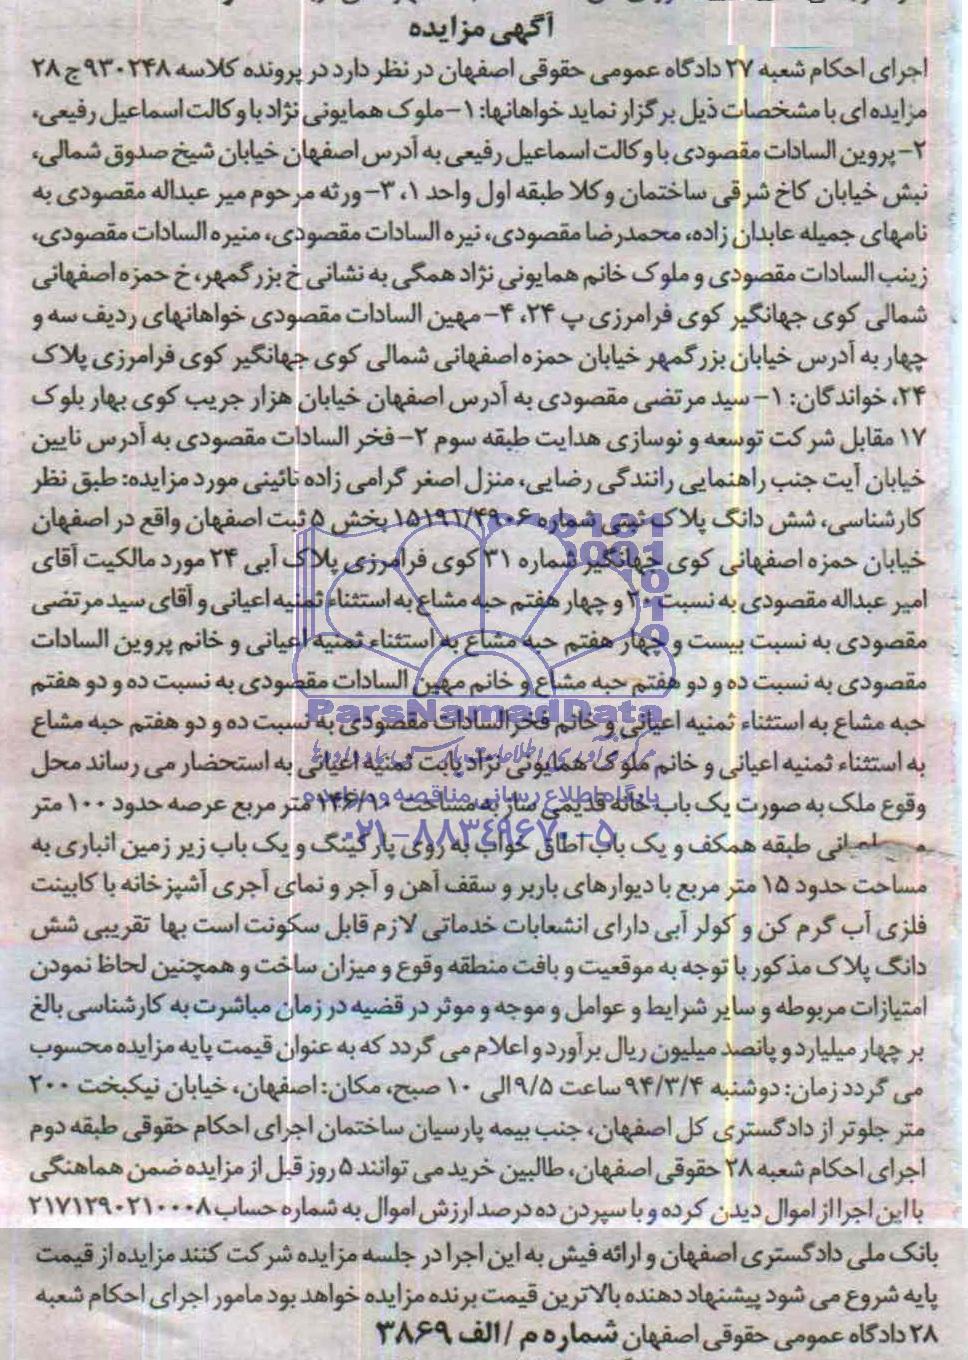 آگهی مزایده
اجرای احکام شعبه ۲۷ دادگاه عمومی حقوقی اصفهان در نظر دارد در پرونده کلاسه ۹۳۰۲۴۸ ج ۲۸
مزایده ای با مشخصات ذیل برگزار نماید خواهانها: ۱- ملوک همایونی نژاد با وکالت اسماعیل رفیعی،
۲- پروین السادات مقصودی با وکالت اسماعیل رفیعی به آدرس اصفهان خیابان شیخ صدوق شمالی،
نبش خیابان کاخ شرقی ساختمان وکلا طبقه اول واحد ۱، ۳- ورثه مرحوم میر عبداله مقصودی به
نامهای جمیله عابدان زاده، محمدرضا مقصودی، نیره السادات مقصودی، منیره السادات مقصودی،
زینب السادات مقصودی و ملوک خانم همایونی نژاد همگی به نشانی خ بزرگمهر، خ حمزه اصفهانی
شمالی کوی جهانگیر کوی فرامرزی پ ۲۴، ۴- مهین السادات مقصودی خواهانهای ردیف سه و
چهار به آدرس خیابان بزرگمهر خیابان حمزه اصفهانی شمالی کوی جهانگیر کوی فرامرزی پلاک
۲۴، خواندگان: ۱- سید مرتضی مقصودی به آدرس اصفهان خیابان هزار جریب کوی بهار بلوک
۱۷ مقابل شرکت توسعه و نوسازی هدایت طبقه سوم ۲- فخر السادات مقصودی به آدرس نایین
خیابان آیت جنب راهنمایی رانندگی رضایی، منزل اصغر گرامی زاده نائینی مورد مزایده: طبق نظر
کارشناسی، شش دانگ پلاک ثبتی شماره ۱۵۱۹۱/۴۹۰۶ بخش ۵ ثبت اصفهان واقع در اصفهان
خیابان حمزه اصفهانی کوی جهانگیر شماره ۳۱ کوی فرامرزی پلاک آبی ۲۴ مورد مالکیت آقای
امیر عبداله مقصودی به نسبت ۲۰ و چهار هفتم حبه مشاع به استثناء ثمنیه اعیانی و آقای سید مرتضی
مقصودی به نسبت بیست و چهار هفتم حبه مشاع به استثناء ثمنیه اعیانی و خانم پروین السادات
مقصودی به نسبت ده و دو هفتم حبه مشاع و خانم مهین السادات مقصودی به نسبت ده و دو هفتم
حبه مشاع به استثناء ثمنیه اعیانی و خانم فخرالسادات مقصودی به نسبت ده و دو هفتم حبه مشاع
به استثناء ثمنیه اعیانی و خانم ملوک همایونی نژاد بابت ثمنیه اعیانی به استحضار می رساند محل
وقوع ملک به صورت یک باب خانه قدیمی ساز به مساحت ۱۴۶/۱۰ متر مربع عرصه حدود ۱۰۰ متر
اعیانی طبقه همکف و یک باب اطاق خواب به روی پارکینگ و یک باب زیر زمین انباری به
مساحت حدود ۱۵ متر مربع با دیوارهای باربر و سقف آهن و آجر و نمای آجری آشپزخانه با کابینت
فلزی آب گرم کن و کولر آبی دارای انشعابات خدماتی لازم قابل سکونت است بها تقریبی شش
دانگ پلاک مذکور با توجه به موقعیت و بافت منطقه وقوع و میزان ساخت و همچنین لحاظ نمودن
امتیازات مربوطه و سایر شرایط و عوامل و موجه و موثر در قضیه در زمان مباشرت به کارشناسی بالغ
بر چهار میلیارد و پانصد میلیون ریال برآورد و اعلام می گردد که به عنوان قیمت پایه مزایده محسوب
می گردد زمان: دوشنبه ۹۴/۳/۴ ساعت ۹/۵ الی ۱۰ صبح، مکان: اصفهان، خیابان نیکبخت ۲۰۰
متر جلوتر از دادگستری کل اصفهان، جنب بیمه پارسیان ساختمان اجرای احکام حقوقی طبقه دوم
اجرای احکام شعبه ۲۸ حقوقی اصفهان، طالبین خرید می توانند ۵ روز قبل از مزایده ضمن هماهنگی
با این اجرا از اموال دیدن کرده و با سپردن ده درصد ارزش اموال به شماره حساب ۲۱۷۱۲۹۰۲۱۰۰۰۸
بانک ملی دادگستری اصفهان و ارائه فیش به این اجرا در جلسه مزایده شرکت کنند مزایده از قیمت
پایه شروع می شود پیشنهاد دهنده بالاترین قیمت برنده مزایده خواهد بود مامور اجرای احکام شعبه
۲۸ دادگاه عمومی حقوقی اصفهان شماره م / الف ۳۸۶۹
ParsNamadData
پایگاه اطلاع رسانی مناقصه و مزایده
۰۲۱-۸۸۳۴۹۶۷۰-۵